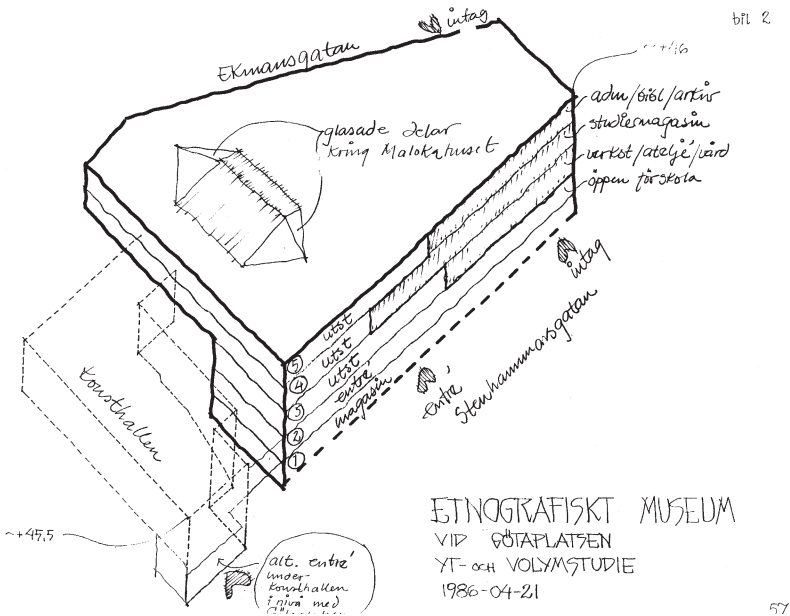 intag
bil 2
Ekmansgatan
~+46
glasade delar
kring Malokahuset
adm/bibl/arkiv
studiemagasin
verkst/ateljé/vård
öppen förskola
intag
utst
utst
utst
entré
magasin
5
4
3
2
1
entré
Stenhammarsgatan
Konsthallen
~+45,5
alt. entré
under
konsthallen
i nivå med
ETNOGRAFISKT MUSEUM
VID GÖTAPLATSEN
YT- OCH VOLYMSTUDIE
1986-04-21
57